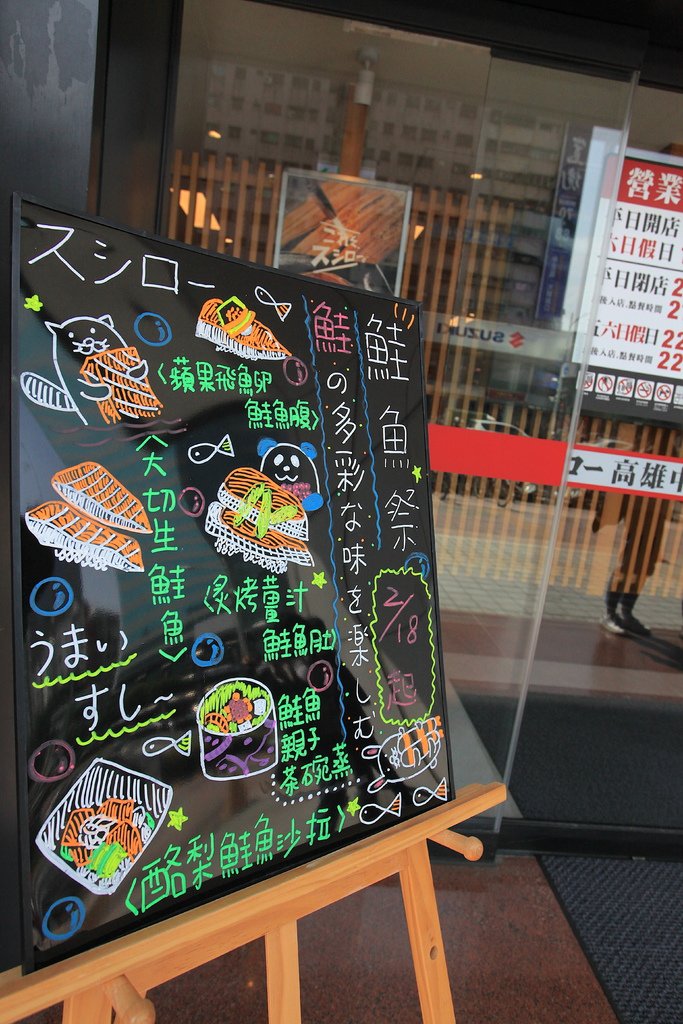 スシロー
鮭魚祭
2/18起
鮭の多彩な味を楽しむ
〈蘋果飛魚卵
鮭魚腹〉
〈大切生鮭魚〉
〈炙烤薑汁
鮭魚肚〉
うまい
すし~
鮭魚
親子
茶碗蒸
〈酪梨鮭魚沙拉〉
スシロー
SUZUKI
營業
平日開店
六日假日
平日閉店 2
後入店,點餐時間 2
五六日假日 22
後入店,點餐時間 22
ロー高雄中